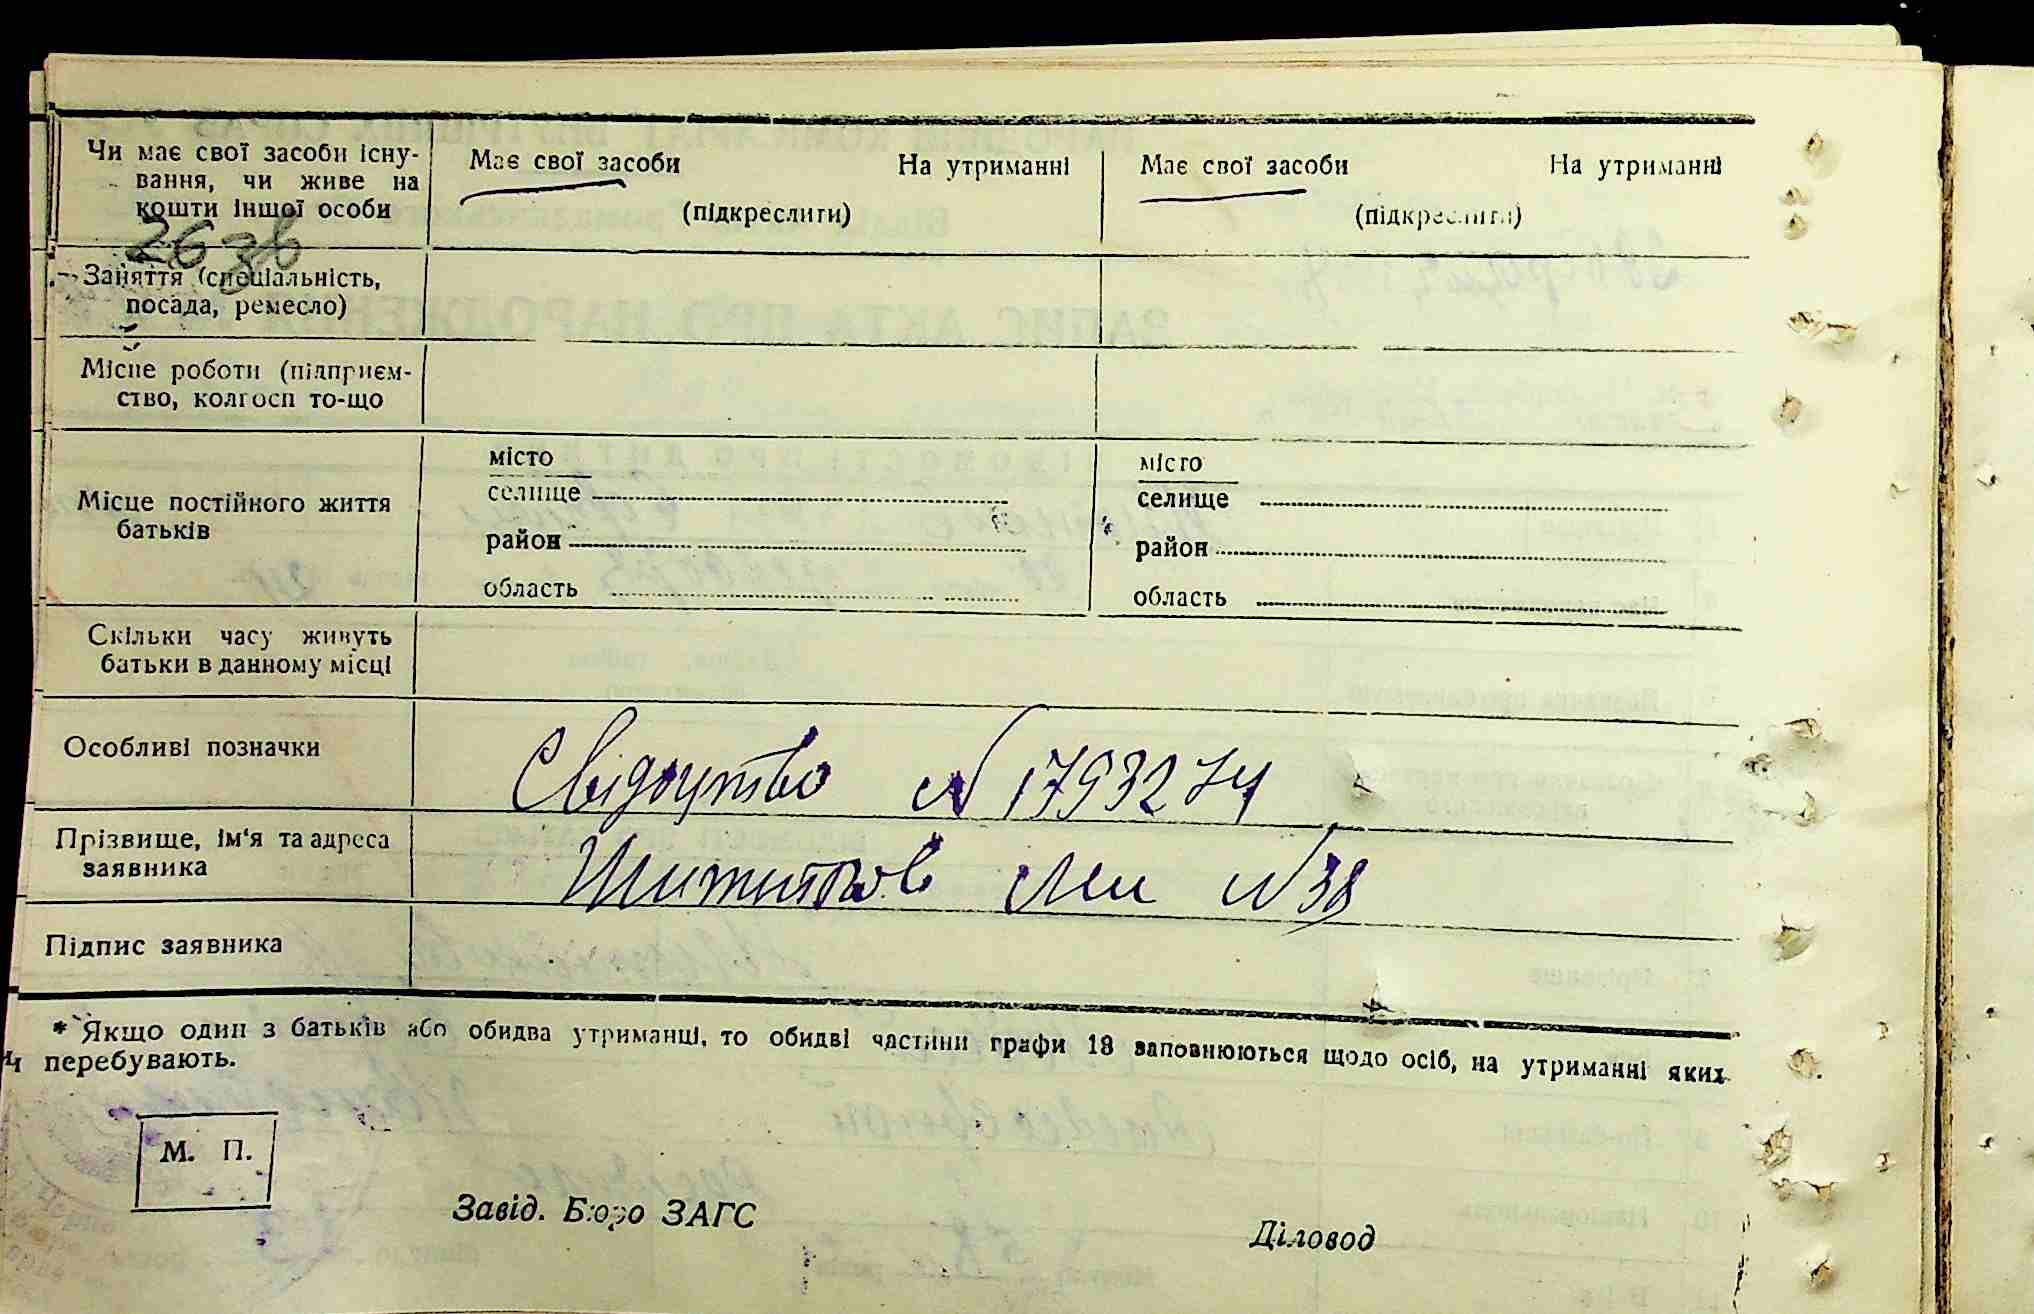 Чи має свої засоби існу-
вання, чи живе на
кошти іншої особи
Має свої засоби На утриманні
(підкреслити)
Має свої засоби На утриманні
(підкреслити)
263в
Заняття (спеціальність,
посада, ремесло)
Місце роботи (підприєм-
ство, колгосп то-що
Місце постійного життя
батьків
місто
селище
район
область
місто
селище
район
область
Скільки часу живуть
батьки в данному місці
Особливі позначки
Свідоцтво N 1793274
Прізвище, ім'я та адреса
заявника
N 38
Підпис заявника
* Якщо один з батьків або обидва утриманці, то обидві частини графи 18 заповнюються щодо осіб, на утриманні яких
перебувають.
М. П.
Завід. Бюро ЗАГС
Діловод